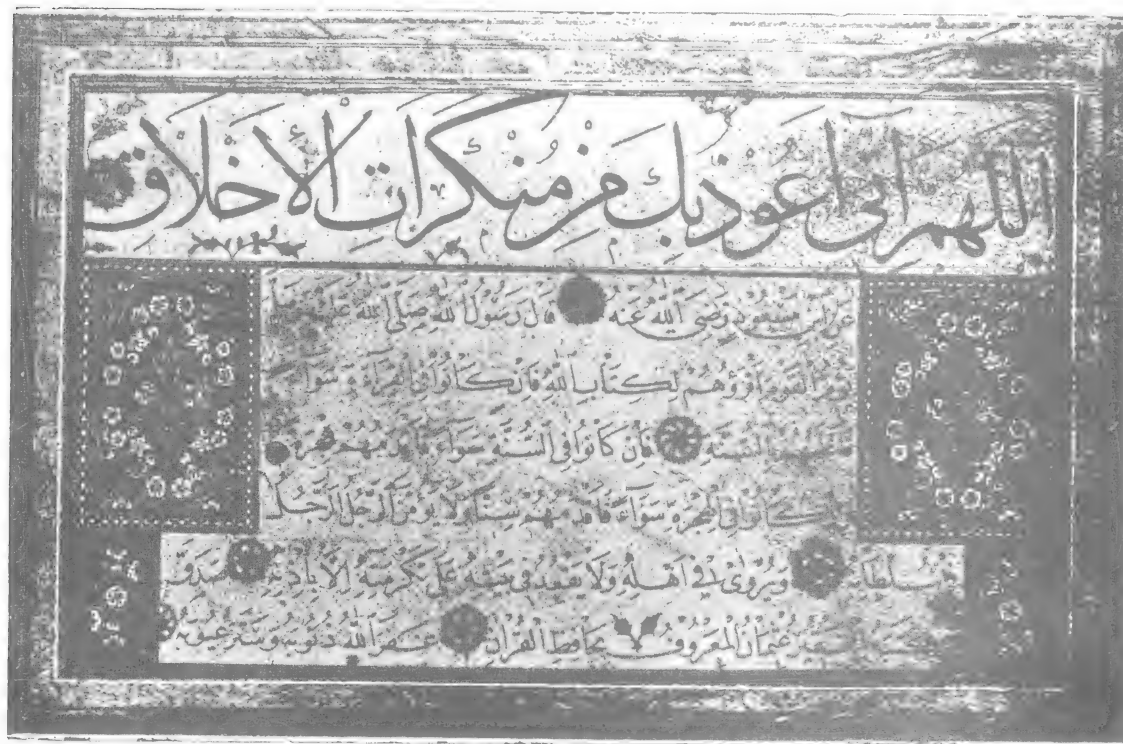 اللهم اني اعوذ بك من منكرات الأخلاق
عن ابن مسعود رضي الله عنه قال رسول الله صلى الله عليه
القوم اقرؤهم لكتاب الله فان كانوا في القراءة سواء
بالسنة فان كانوا في السنة سواء فاقدمهم هجرة
كانوا في الهجرة سواء فاقدمهم سنا ولا يؤمن الرجل الرجل
سلطانه ويروى في اهله ولا يقعد في بيته على تكرمته الا باذنه صدق
عثمان المعروف بحافظ القرآن غفر الله ذنوبه وستر عيوبه